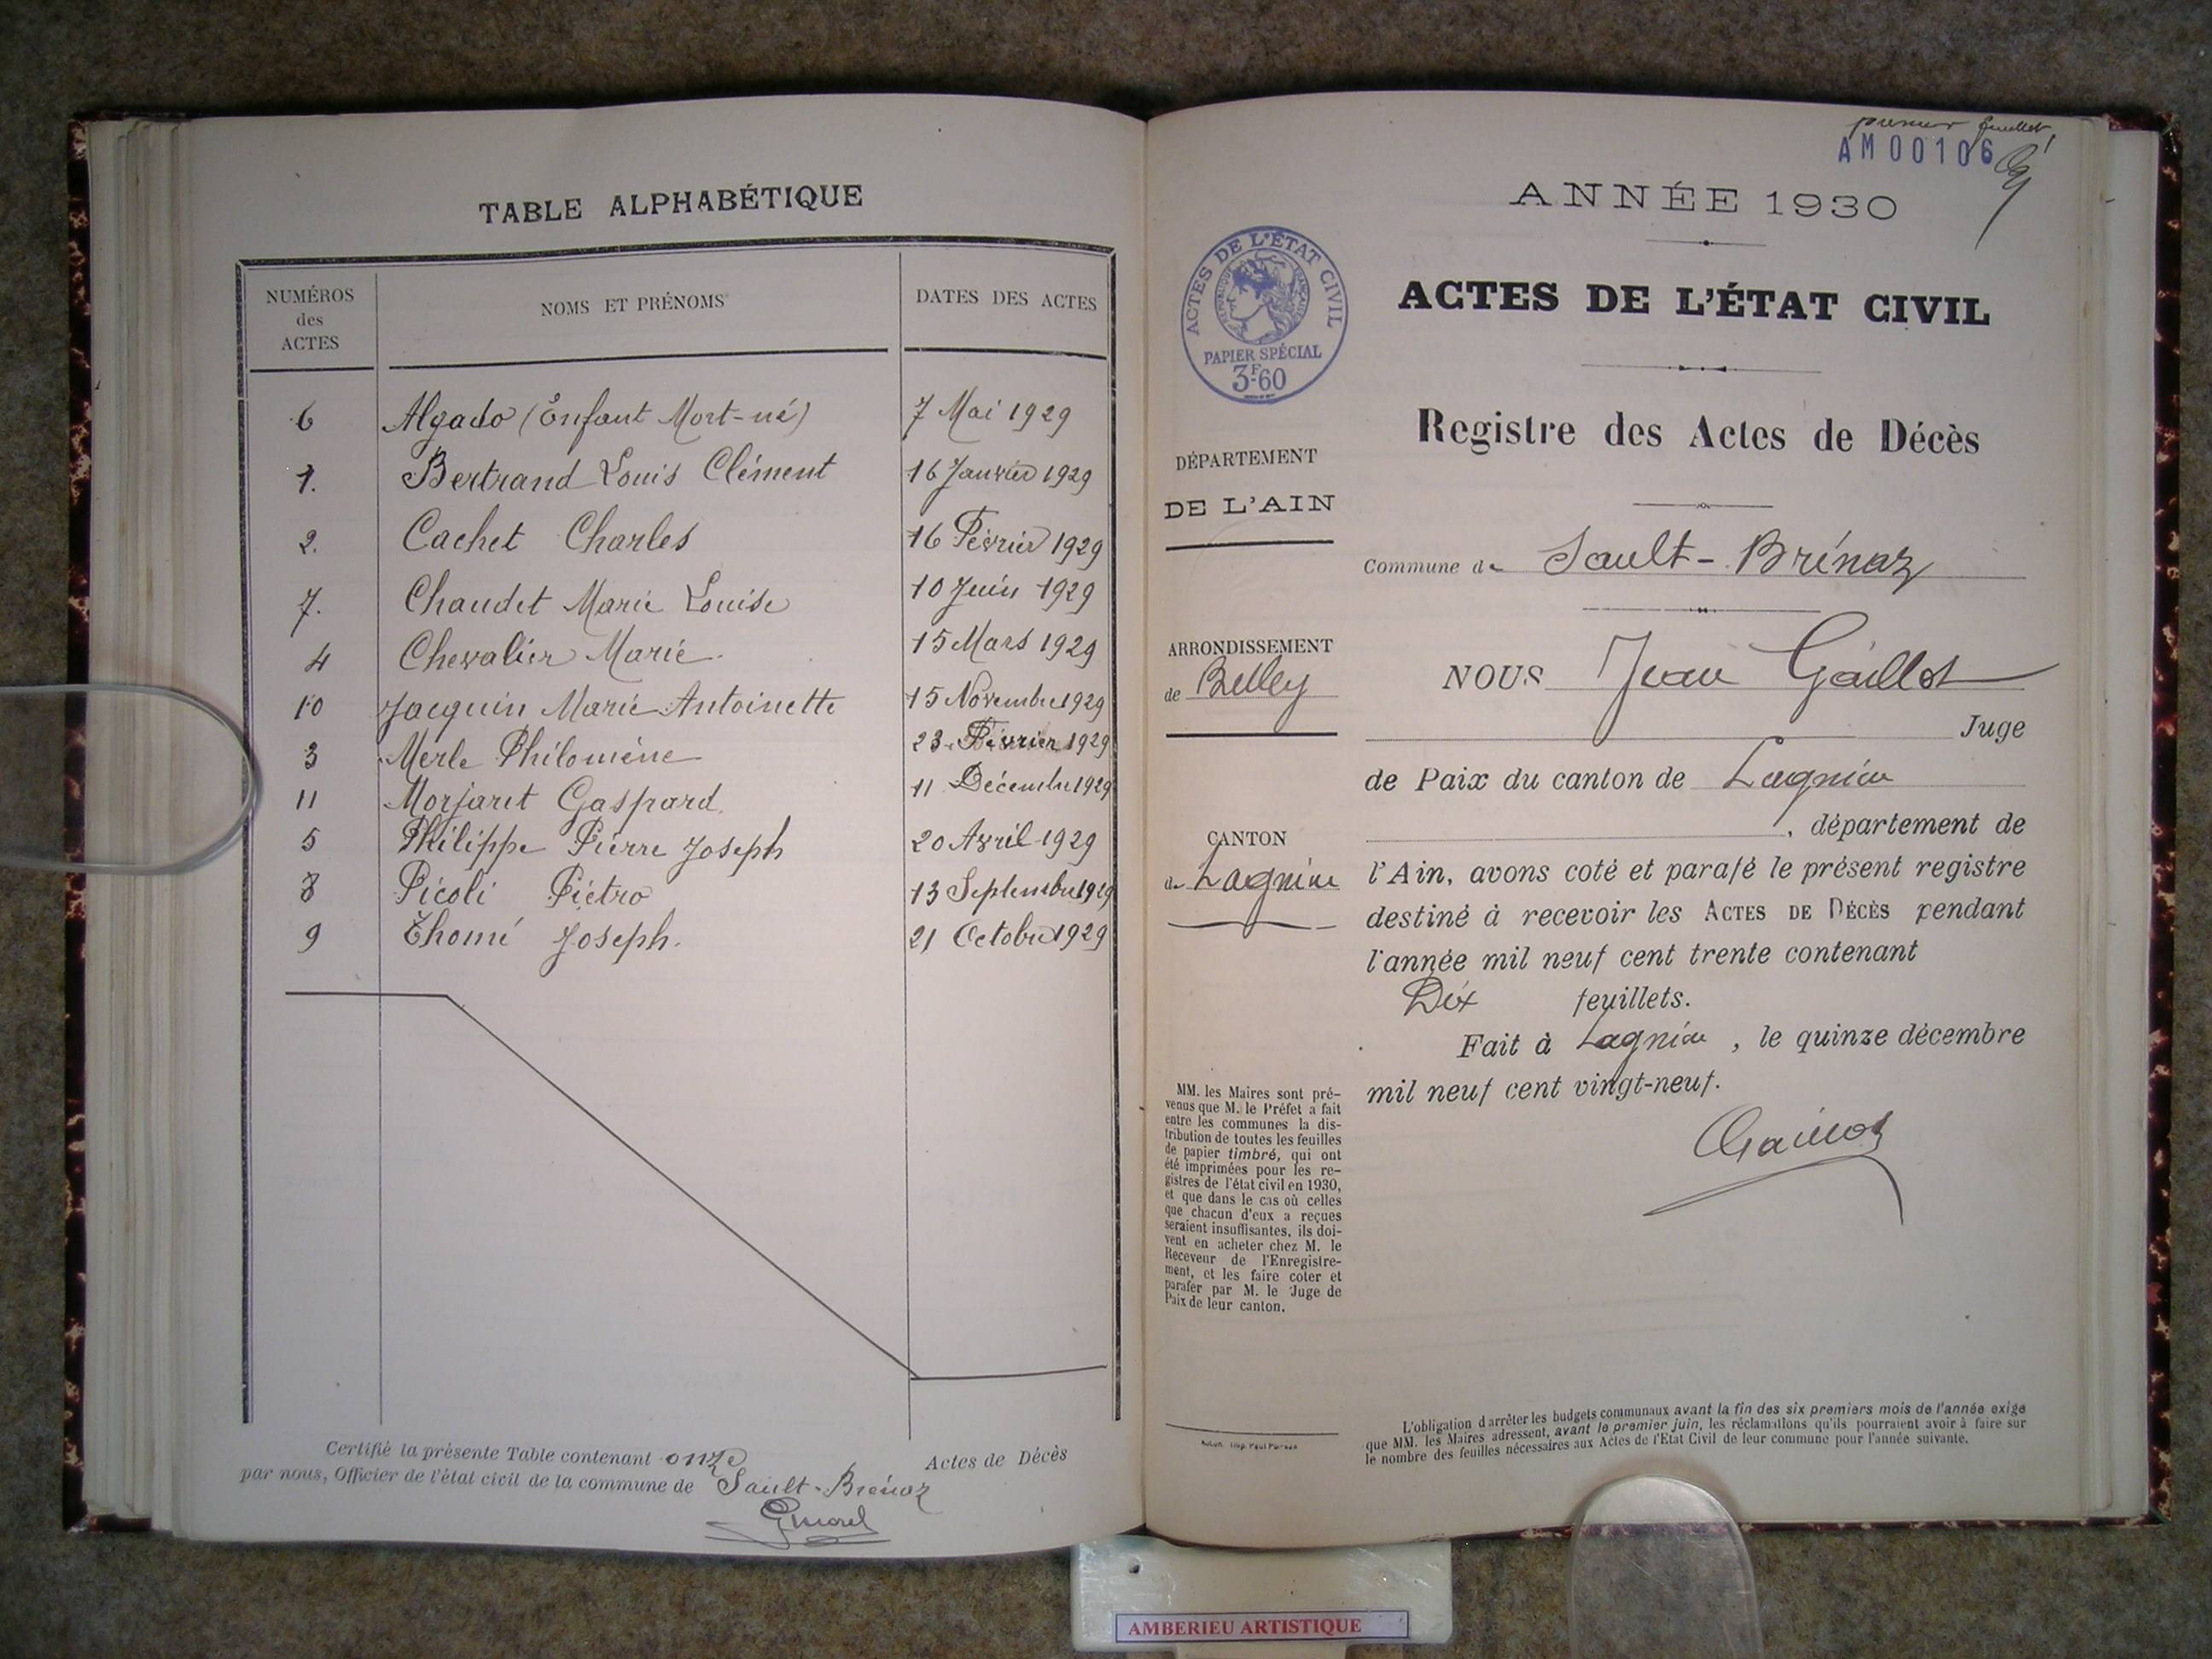 TABLE ALPHABÉTIQUE
NUMÉROS des ACTES NOMS ET PRÉNOMS DATES DES ACTES
6 Algado (Enfant Mort-né) 7 Mai 1929
1. Bertrand Louis Clément 16 Janvier 1929
2. Cachet Charles 16 Février 1929
7. Chaudet Marie Louise 10 Juin 1929
4 Chevalier Marie 15 Mars 1929
10 Jacquin Marie Antoinette 15 Novembre 1929
3 Merle Philomène 23 Février 1929
11 Morjaret Gaspard 11 Décembre 1929
5 Philippe Pierre Joseph 20 Avril 1929
8 Picoli Piétro 13 Septembre 1929
9 Thomé Joseph. 21 Octobre 1929
Certifié la présente Table contenant onze Actes de Décès
par nous, Officier de l'état civil de la commune de Sault-Brénaz
premier feuillet
AM00106
ANNÉE 1930
ACTES DE L'ÉTAT CIVIL
RÉPUBLIQUE FRANÇAISE
PAPIER SPÉCIAL
3F60
ACTES DE L'ÉTAT CIVIL
Registre des Actes de Décès
DÉPARTEMENT
DE L'AIN
Commune de Sault-Brénaz
ARRONDISSEMENT
de Belley
CANTON
de Lagnieu
NOUS Jean Gaillot
Juge
de Paix du canton de Lagnieu
, département de
l'Ain, avons coté et parafé le présent registre
destiné à recevoir les ACTES DE DÉCÈS pendant
l'année mil neuf cent trente contenant
Dix feuillets.
Fait à Lagnieu, le quinze décembre
mil neuf cent vingt-neuf.
Gaillot
MM. les Maires sont pré-
venus que M. le Préfet a fait
entre les communes la dis-
tribution de toutes les feuilles
de papier timbré, qui ont
été imprimées pour les re-
gistres de l'état civil en 1930,
et que dans le cas où celles
que chacun d'eux a reçues
seraient insuffisantes, ils doi-
vent en acheter chez M. le
Receveur de l'Enregistre-
ment, et les faire coter et
parafer par M. le Juge de
Paix de leur canton.
L'obligation d'arrêter les budgets communaux avant la fin des six premiers mois de l'année exige
que MM. les Maires adressent, avant le premier juin, les réclamations qu'ils pourraient avoir à faire sur
le nombre des feuilles nécessaires aux Actes de l'Etat Civil de leur commune pour l'année suivante.
AMBERIEU ARTISTIQUE